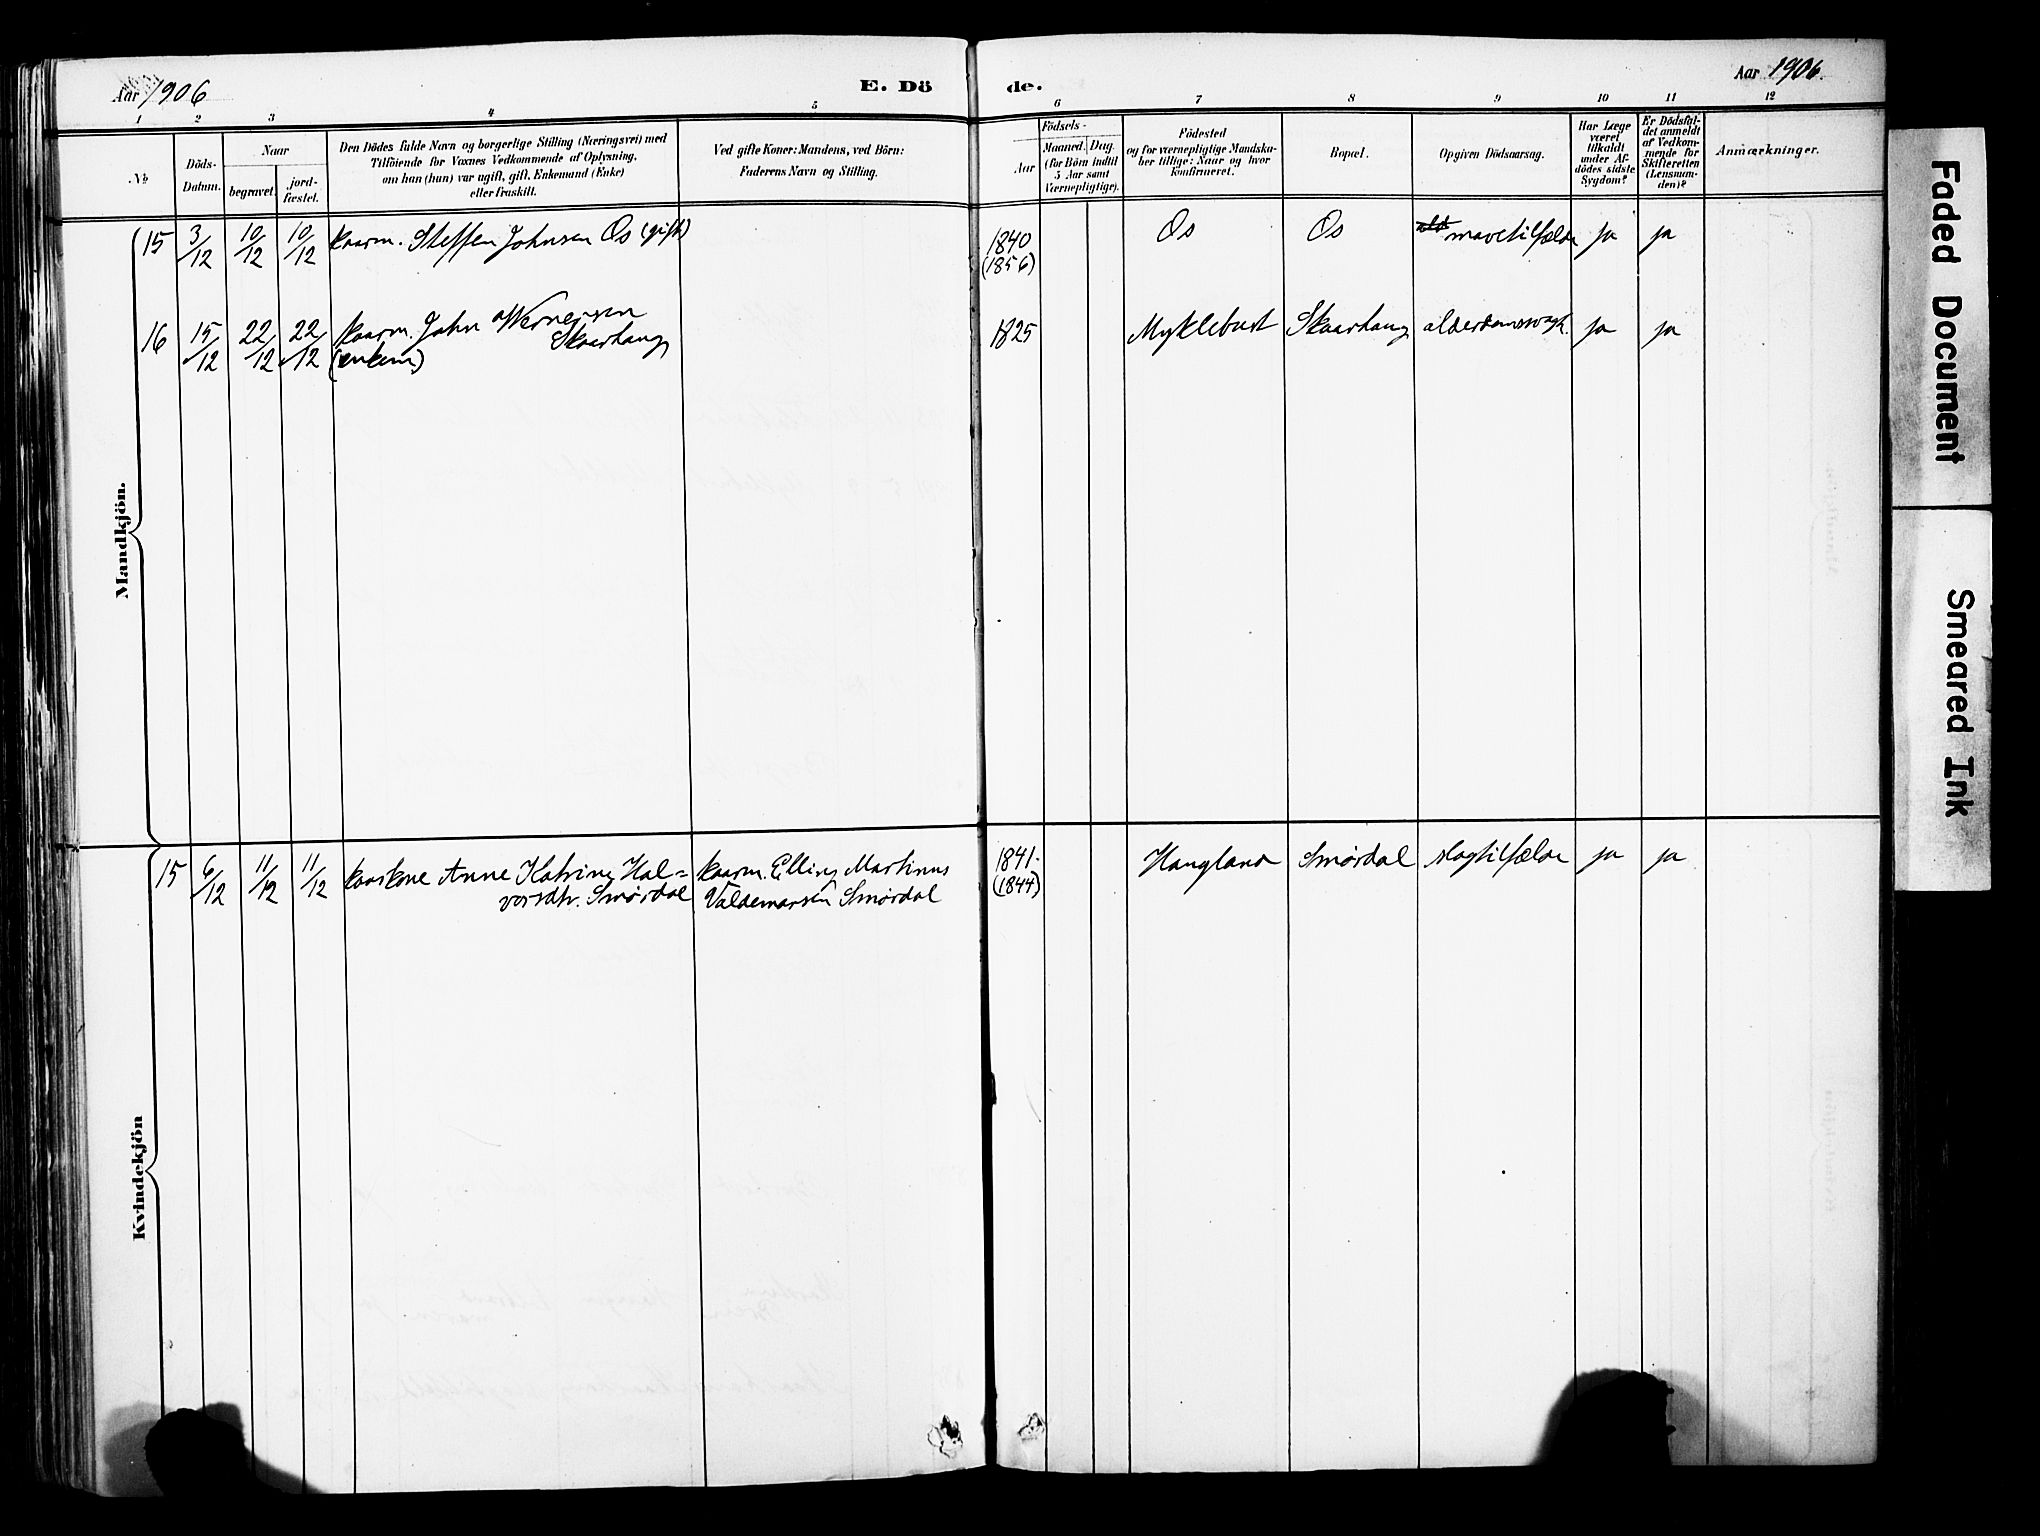 Aar 1906
E. Dö
de.
Aar 1906.
1 2 3 4 5 6 7 8 9 10 11 12
No
Döds-
Datum.
Naar
begravet.
jord-
fæstet.
Den Dödes fulde Navn og borgerlige Stilling (Næringsvei) med
Tilföiende for Voxnes Vedkommende af Oplysning,
om han (hun) var ugift, gift, Enkemand (Enke)
eller fraskilt.
Ved gifte Koner: Mandens, ved Börn:
Faderens Navn og Stilling.
Födsels-
Aar
Maaned.
Dag.
(for Börn indtil
5 Aar samt
Værnepligtige).
Födested
og for værnepligtige Mandska-
ber tillige: Naar og hvor
konfirmeret.
Bopæl.
Opgiven Dödsaarsag.
Har Læge
været
tilkaldt
under Af-
dödes sidste
Sygdom?
Er Dödsfal-
det anmeldt
af Vedkom-
mende for
Skifteretten
(Lensman-
den)?
Anmærkninger.
Mandkjön.
15 3/12 10/12 10/12 kaarm. Steffen Johnsen Os (gift) 1840 Os Os mavetilfælde ja ja
(1856)
16 15/12 22/12 22/12 kaarm. John Wernersen 1825 Myklebust Skaarhaug alderdomssvagh. ja ja
Skaarhaug
(enkem)
Kvindekjön
15 6/12 11/12 11/12 kaarkone Anne Katrine Hal= kaarm. Elling Martinus 1841. Haugland Smørdal slagtilfælde ja ja
vorsdtr. Smørdal Valdemarsen Smørdal (1844)
Faded Document
Smeared Ink